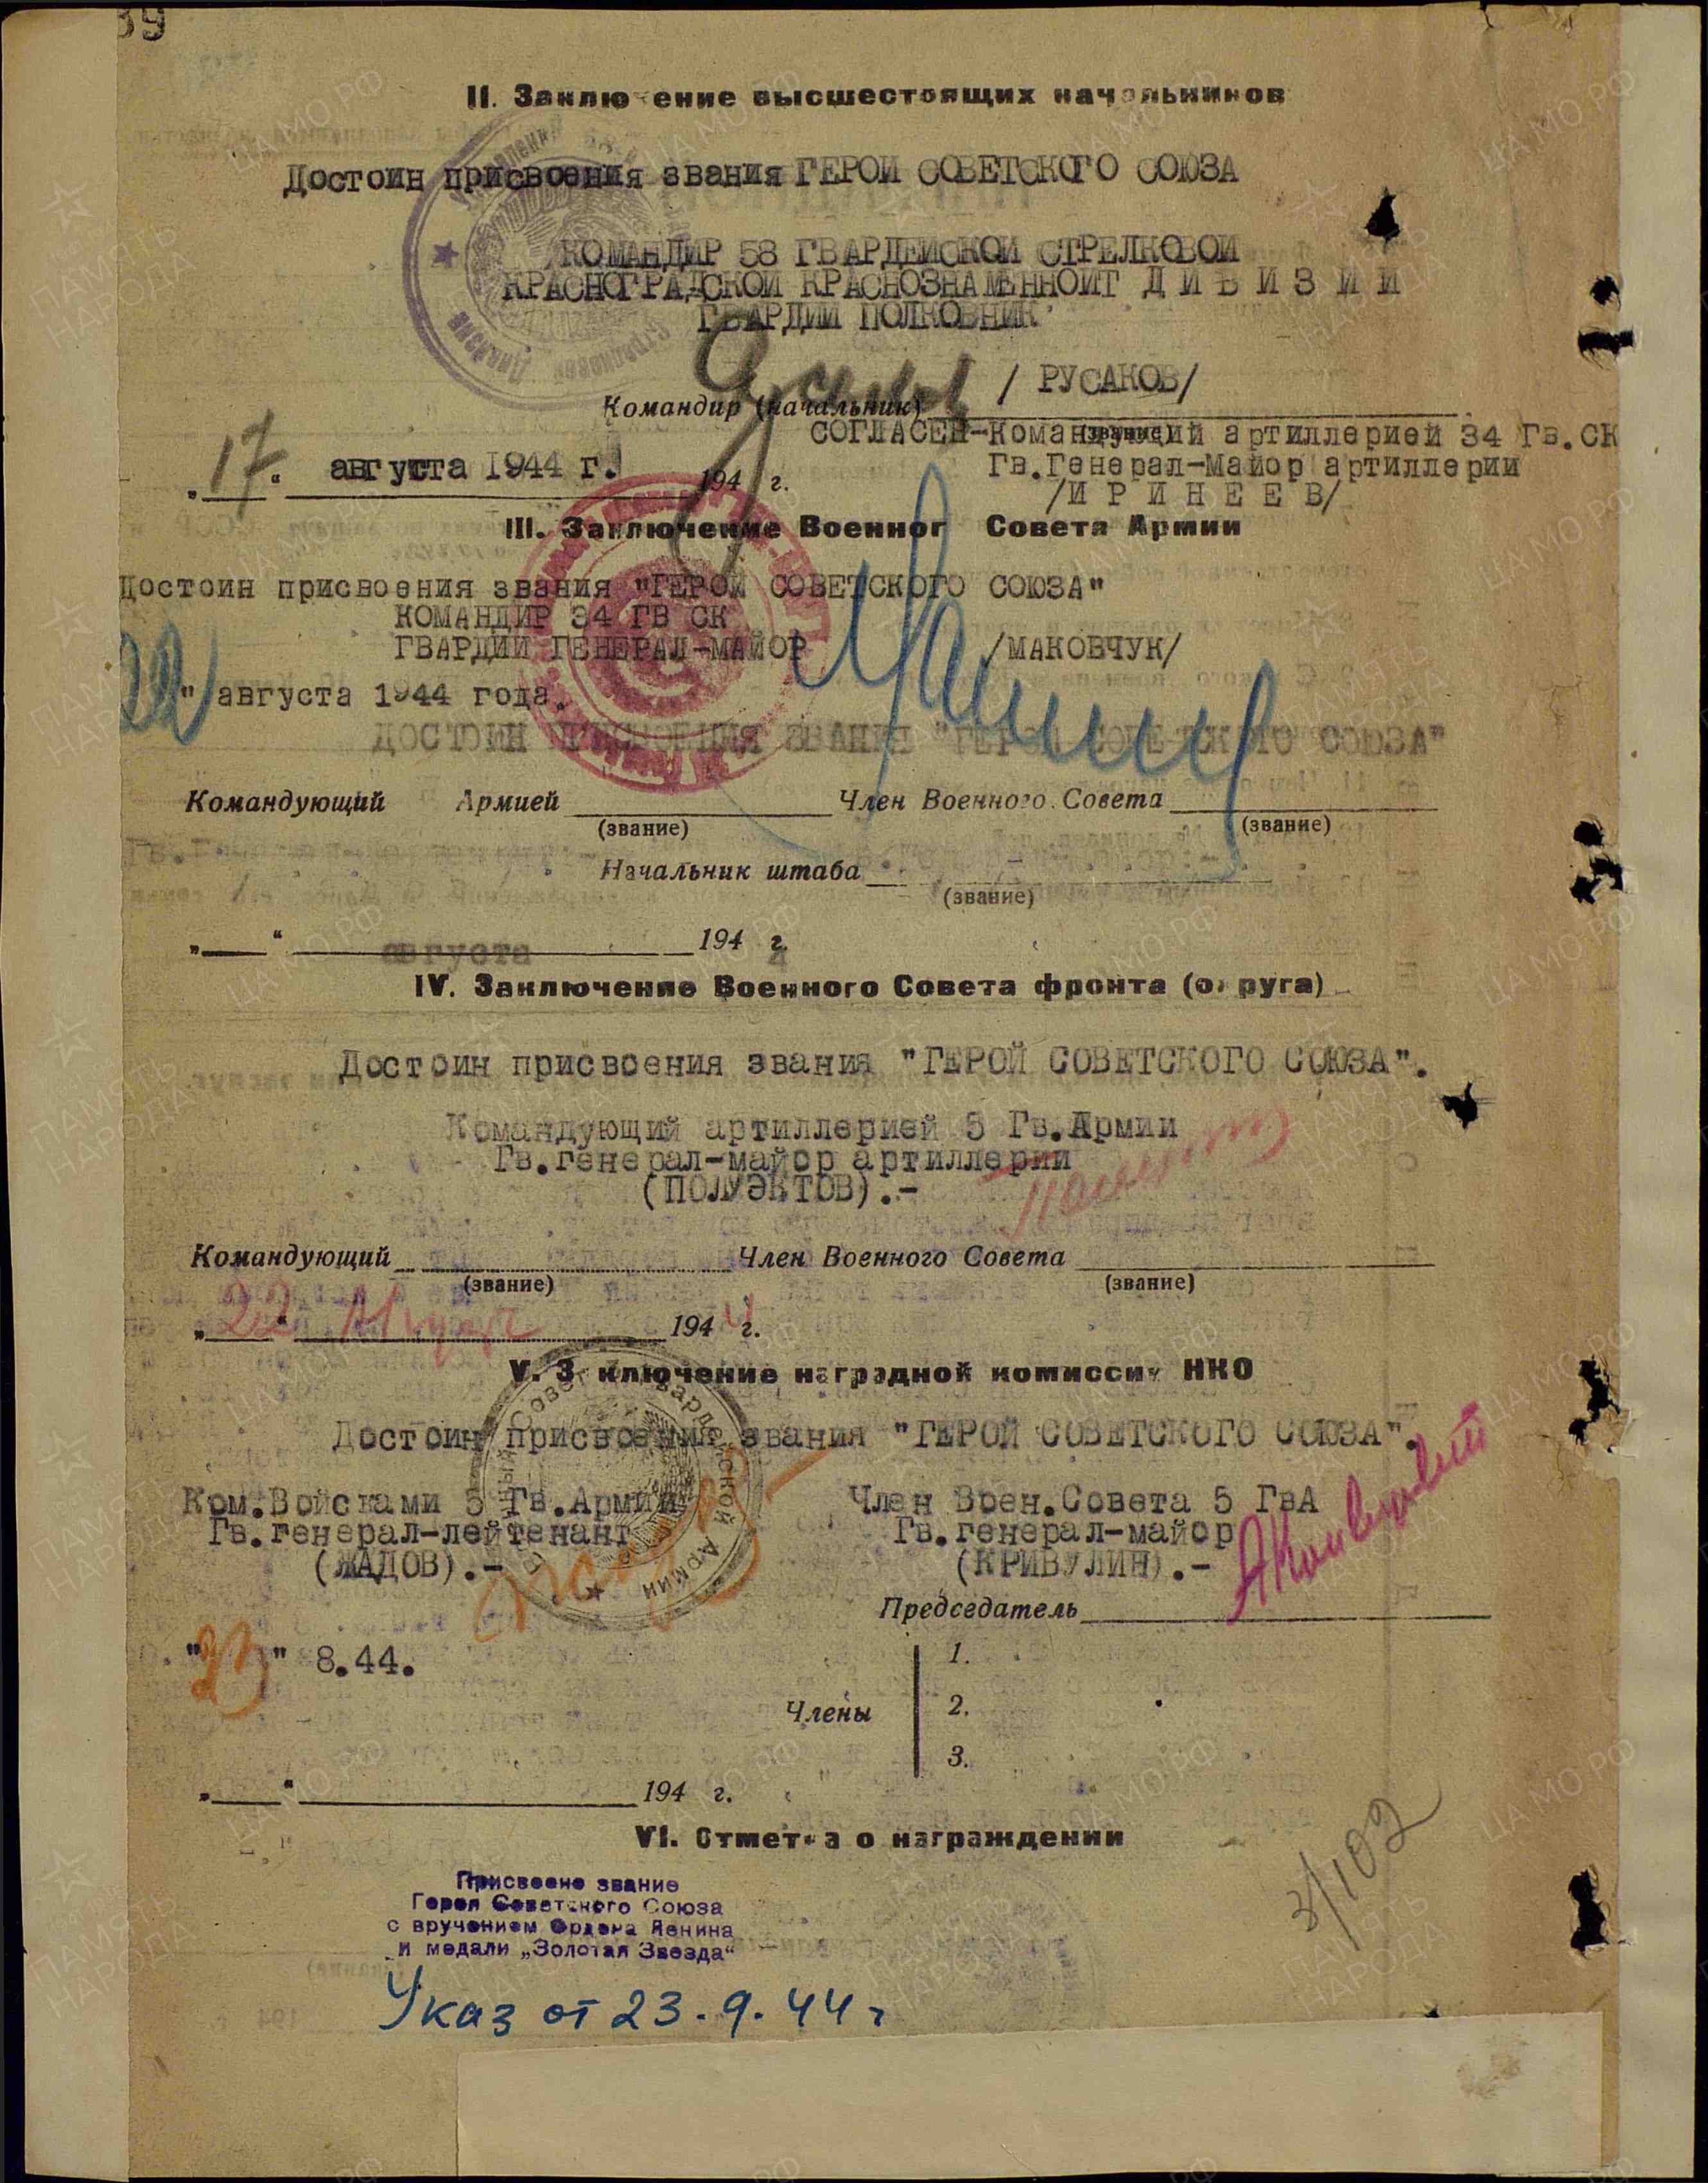 39
II. Заключение высшестоящих начальников
Достоин присвоения звания ГЕРОЙ СОВЕТСКОГО СОЮЗА
КОМАНДИР 58 ГВАРДЕЙСКОЙ СТРЕЛКОВОЙ
КРАСНОГРАДСКОЙ КРАСНОЗНАМЕННОЙТ Д И В И З И И
ГВАРДИИ ПОЛКОВНИК
Командир (начальник) / РУСАКОВ/
СОГЛАСЕН-Командующий артиллерией 34 Гв.СК
Гв.Генерал-Майор артиллерии
/И Р И Н Е Е В/
„17“ августа 1944 г. 194 г.
III. Заключение Военног Совета Армии
Достоин присвоения звания "ГЕРОЙ СОВЕТСКОГО СОЮЗА"
КОМАНДИР 34 ГВ СК
ГВАРДИИ ГЕНЕРАЛ-МАЙОР /МАКОВЧУК/
22" августа 1944 года.
ДОСТОИН ПРИСВОЕНИЯ ЗВАНИЯ "ГЕРОЙ СОВЕТСКОГО СОЮЗА"
Командующий Армией Член Военного Совета
(звание) (звание)
Начальник штаба
(звание)
„ “ августа 194 4 г.
IV. Заключение Военного Совета фронта (округа)
Достоин присвоения звания "ГЕРОЙ СОВЕТСКОГО СОЮЗА".
Командующий артиллерией 5 Гв.Армии
Гв.генерал-майор артиллерии
(ПОЛУЭКТОВ).-
Командующий Член Военного Совета
(звание) (звание)
„22“ Августа 1944 г.
V. З ключение наградной комиссии НКО
Достоин присвоения звания "ГЕРОЙ СОВЕТСКОГО СОЮЗА".
Ком.Войсками 5 Гв.Армии Член Воен.Совета 5 ГвА
Гв.генерал-лейтенант Гв.генерал-майор
(ЖАДОВ).- (КРИВУЛИН).-
Председатель
"23" 8.44.
1.
Члены 2.
3.
„ “ 194 г.
VI. Отметка о награждении
Присвоено звание
Героя Советского Союза
с вручением Ордена Ленина
и медали „Золотая Звезда“
3/102
Указ от 23.9.44 г